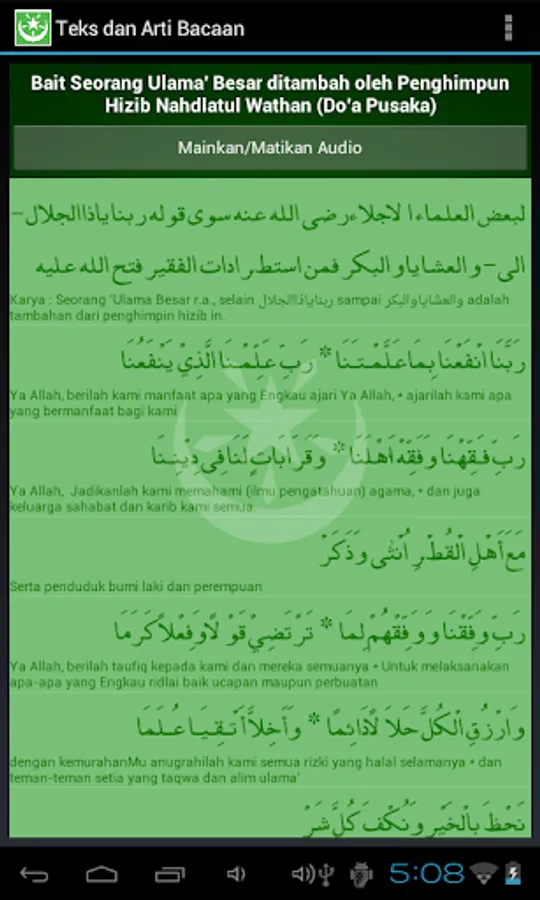 Teks dan Arti Bacaan
Bait Seorang Ulama' Besar ditambah oleh Penghimpun
Hizib Nahdlatul Wathan (Do'a Pusaka)
Mainkan/Matikan Audio
لبعض العلماء الاجلاء رضى الله عنه سوى قوله ربنا ياذاالجلال –
الى – والعشاياوالبكر فمن استطرادات الفقير فتح الله عليه
Karya : Seorang 'Ulama Besar r.a., selain ربناياذاالجلال sampai والعشاياوالبكر adalah
tambahan dari penghimpin hizib in.
رَبَّنَا انْفَعْنَا بِمَا عَلَّمْتَنَا * رَبِّ عَلِّمْنَا الَّذِيْ يَنْفَعُنَا
Ya Allah, berilah kami manfaat apa yang Engkau ajari Ya Allah, • ajarilah kami apa
yang bermanfaat bagi kami
رَبِّ فَقِّهْنَا وَفَقِّهْ اَهْلَنَا * وَقَرَابَاتٍ لَنَا فِى دِيْنِنَا
Ya Allah, Jadikanlah kami memahami (ilmu pengatahuan) agama, • dan juga
keluarga sahabat dan karib kami semua
مَعَ اَهْلِ الْقُطْرِ اُنْثٰى وَذَكَرْ
Serta penduduk bumi laki dan perempuan
رَبِّ وَفِّقْنَا وَوَفِّقْهُمْ لِمَا * تَرْتَضِيْ قَوْلًا وَفِعْلًا كَرَمَا
Ya Allah, berilah taufiq kepada kami dan mereka semuanya • Untuk melaksanakan
apa-apa yang Engkau ridlai baik ucapan maupun perbuatan
وَارْزُقِ الْكُلَّ حَلَالًا دَائِمًا * وَأَخِلَّاءَ أَتْقِيَاءَ عُلَمَا
dengan kemurahanMu anugrahilah kami semua rizki yang halal selamanya • dan
teman-teman setia yang taqwa dan alim ulama'
نَحْظَ بِالْخَيْرِ وَنُكْفَ كُلَّ شَرْ
5:08